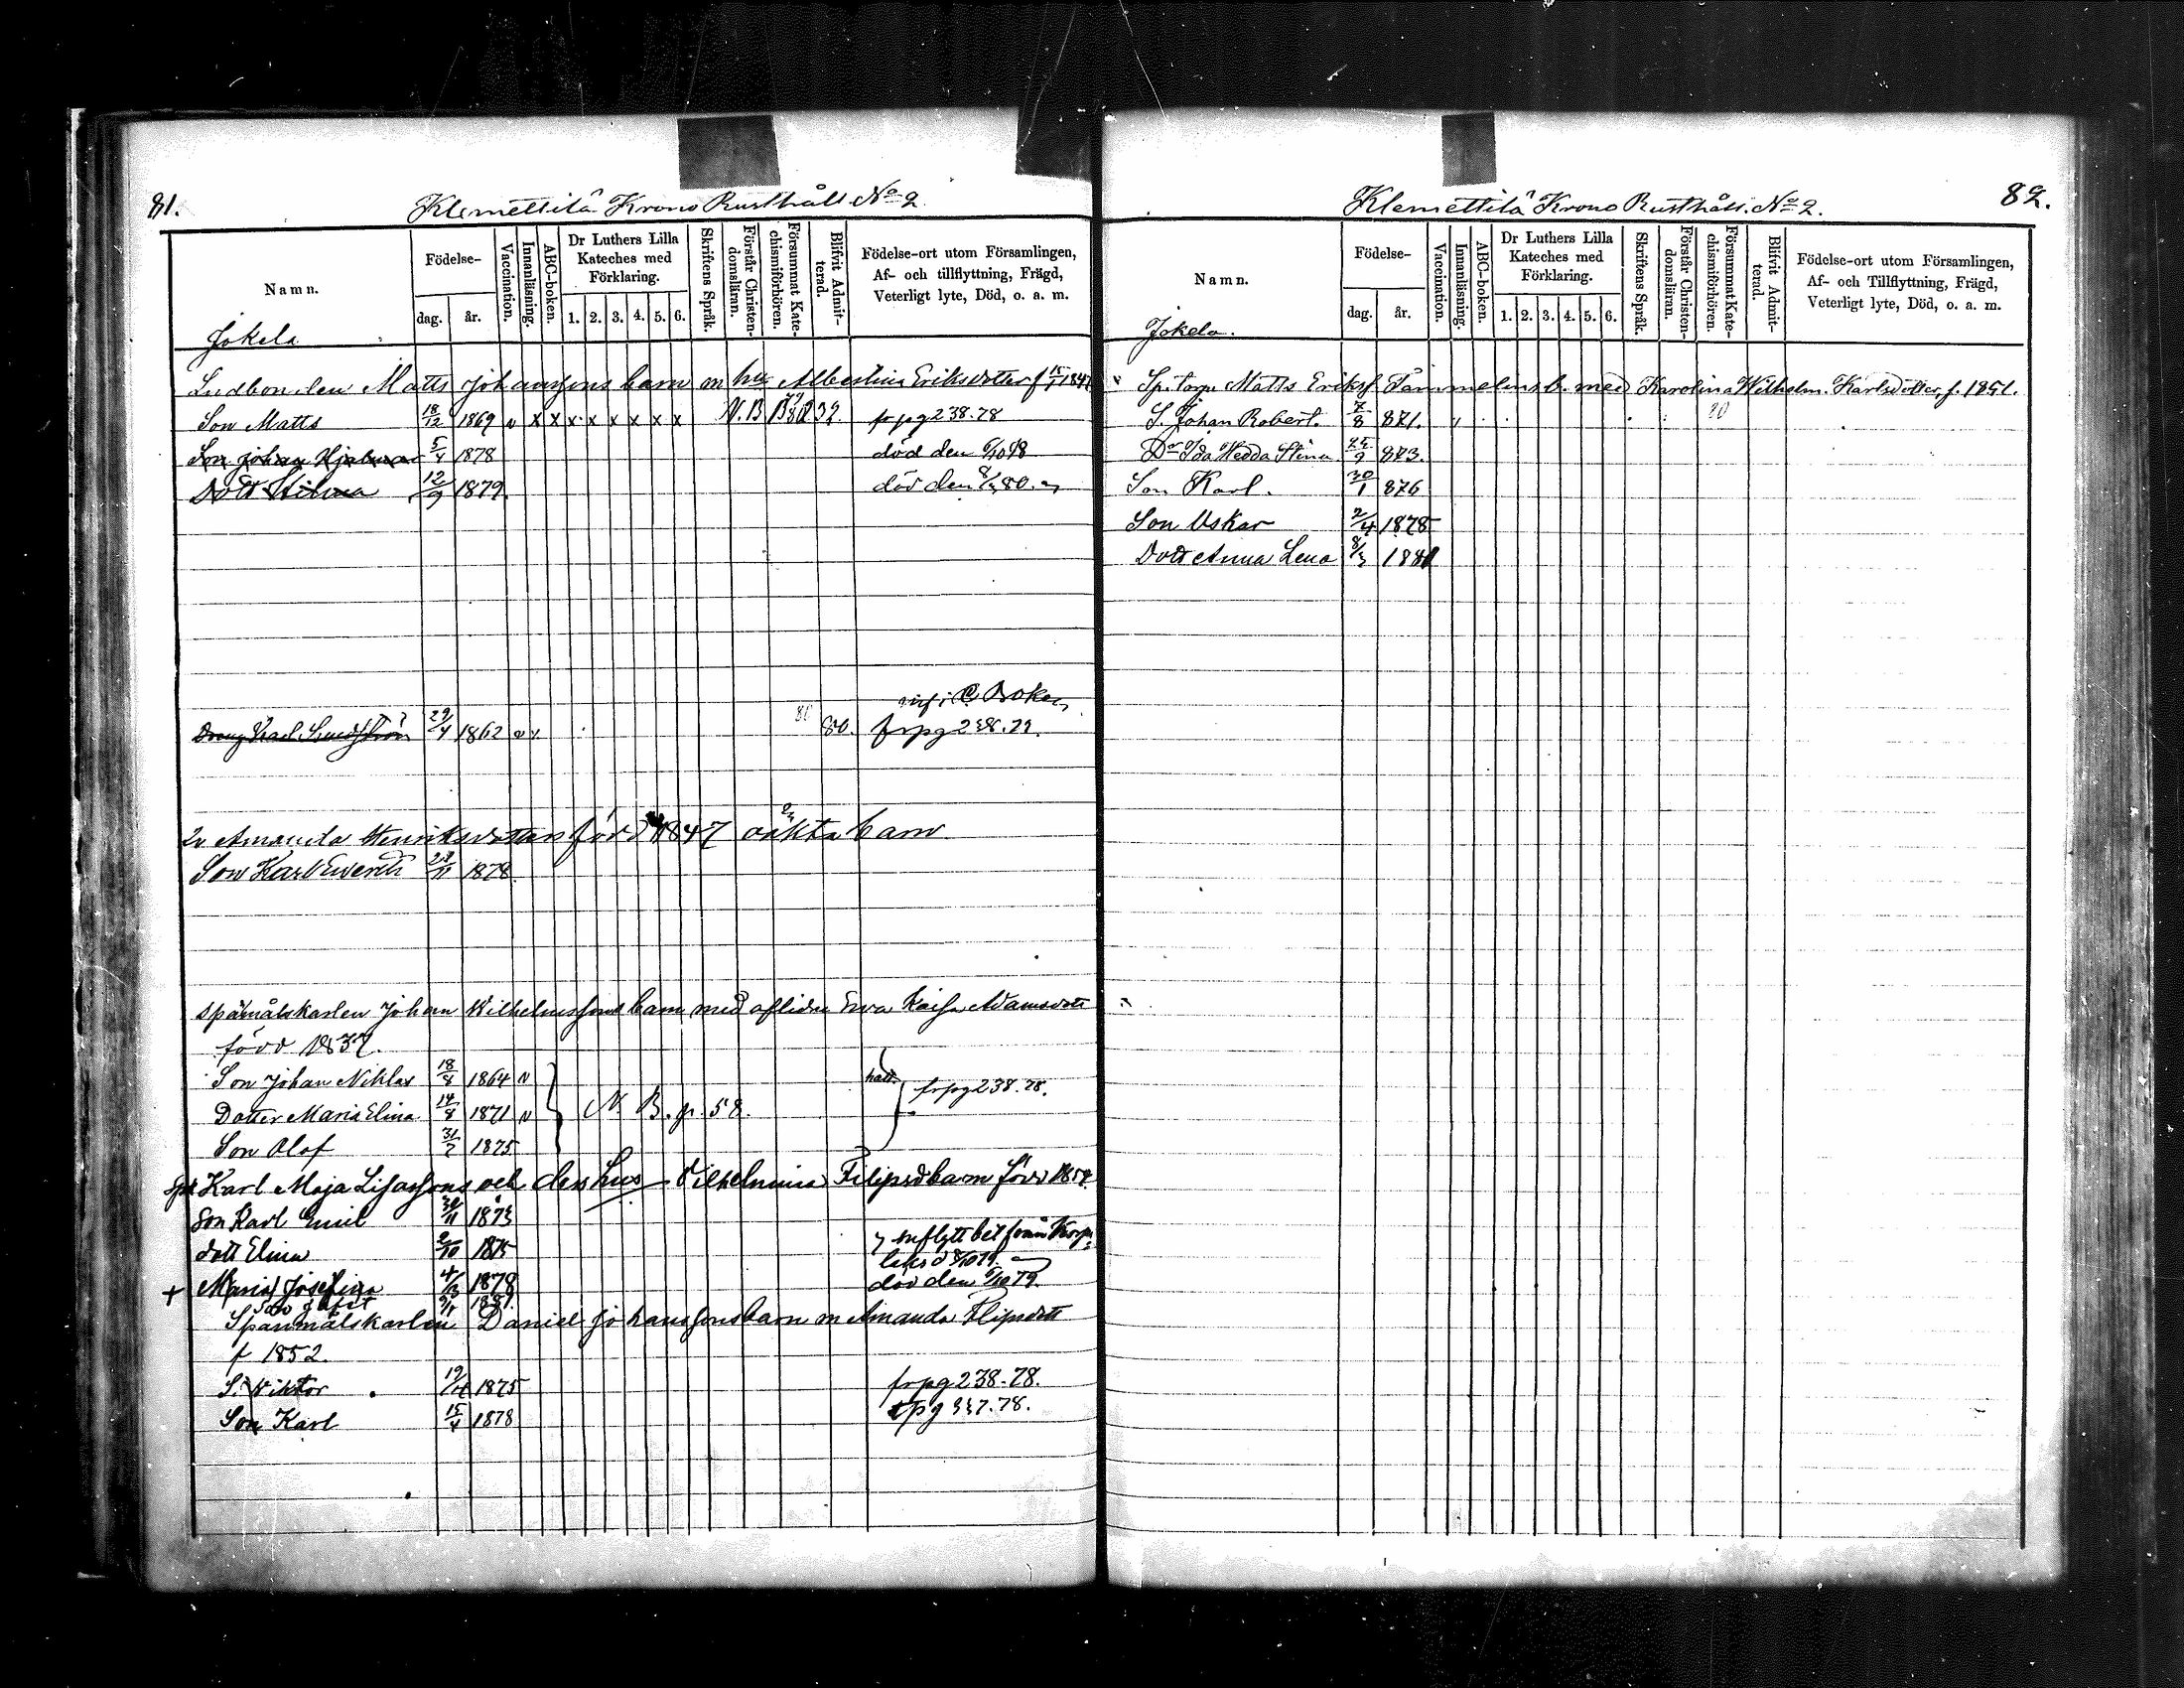 81.
Klemettilä Krono Rusthåll No 2
Namn.
Födelse-
dag.
år.
Vaccination.
Innanläsning.
ABC-boken.
Dr Luthers Lilla Kateches med Förklaring.
1. 2. 3. 4. 5. 6.
Skriftens Språk.
Förstår Christendomsläran.
Försummat Katechismiförhören.
Blifvit Admitterad.
Födelse-ort utom Församlingen,
Af- och tillflyttning, Frägd,
Veterligt lyte, Död, o. a. m.
Jokela
Matts Johanssons barn m hu Albertina Eriksdotter f
Son Matts 18/12 1869 v x x x x x x x x N.B. frpg 238.78
Son Johan Hjalmar 5/4 1878 död den
Dott 12/9 1879 död den 80.
C Boken
Dreng Karl 29/4 1862 80. frpg 238.78.
Amanda Henriksdotters född 1847 oäkta barn
Son Karl Evert 28/11 1878
spånmålskarlen Johan Wilhelmssons barn med aflidne Eva Kaisa Adamsdott
född 1837.
Son Johan Niklas 18/8 1864 v
Dotter Maria Elina 14/8 1871 v N. B. p. 58. frpg 238.78.
Son Olof 31/7 1875
Karl Maja Lisassons och dess hus Vilhelmina Filipsd barn född
Son Karl Emil 30/11 1873
dott Elina 2/10 1875 inflytt bet från
+ Maria Josefina 1878 död den 6/10 79.
1881.
Spånmålskarlen Daniel Johanssons barn m Amanda Filipsdott
f 1852.
S. Viktor 1875 frpg 238.78.
Son Karl 15/4 1878 337.78.
Klemettilä Krono Rusthåll. No 2.
82.
Namn.
Födelse-
dag.
år.
Vaccination.
Innanläsning.
ABC-boken.
Dr Luthers Lilla Kateches med Förklaring.
1. 2. 3. 4. 5. 6.
Skriftens Språk.
Förstår Christendomsläran.
Försummat Katechismiförhören.
Blifvit Admitterad.
Födelse-ort utom Församlingen,
Af- och Tillflyttning, Frägd,
Veterligt lyte, Död, o. a. m.
Jokela.
Sp. torp. Matts Eriksf Tammelins b. med Karolina Wilhelm. Karlsdotter, f. 1851.
S. Johan Robert. 7/8 871. 80
Dr Ida Hedda Stina 25/9 873.
Son Karl. 30/1 876
Son Oskar 2/4 1878
Dott Anna Lena 8/3 1881